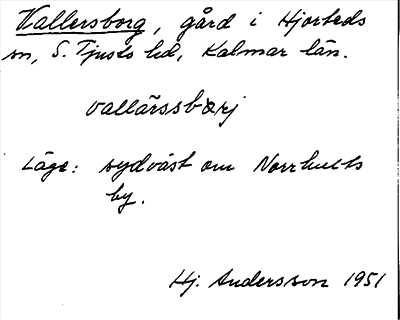 Vallersborg, gård i Hjorteds
sn, S. Tjusts hd, Kalmar län.
vallärssbærj
Läge: sydväst om Norrhults
by.
Hj. Andersson 1951